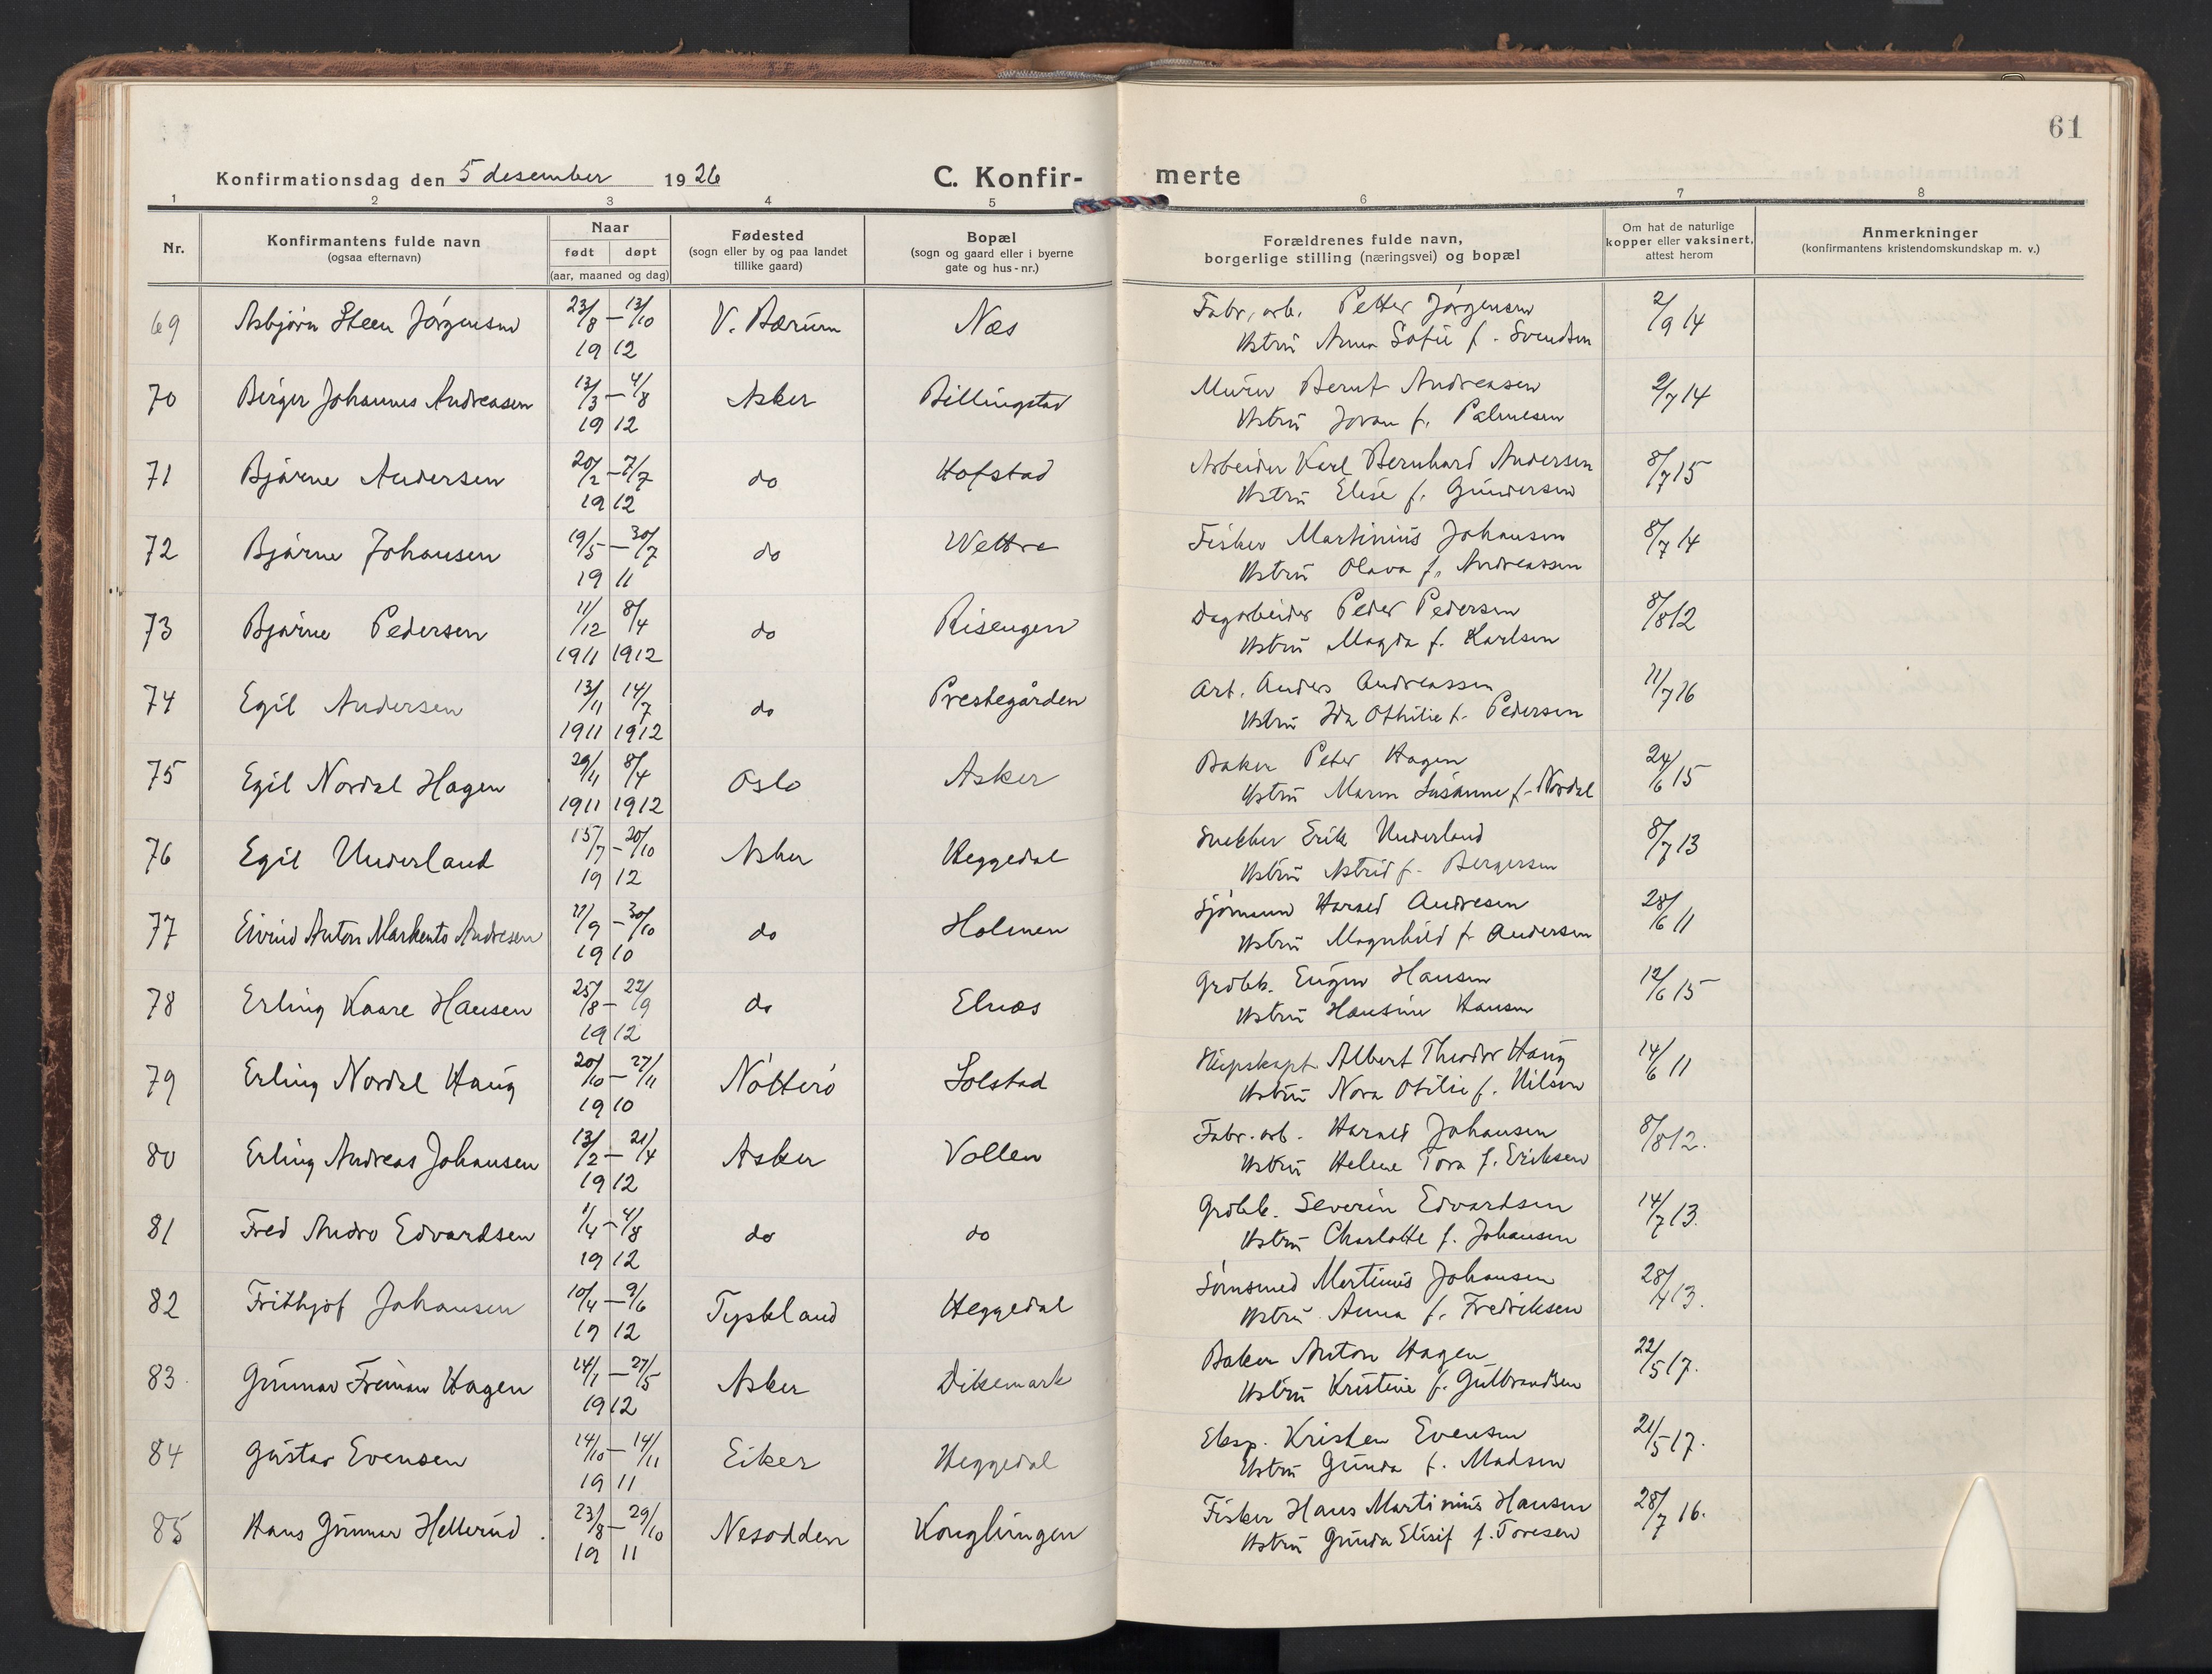 61
Konfirmationsdag den 5 desember 1926
C. Konfir- merte
1 2 3 4 5 6 7 8
Nr.
Konfirmantens fulde navn
(ogsaa efternavn)
Naar
født døpt
(aar, maaned og dag)
Fødested
(sogn eller by og paa landet
tillike gaard)
Bopæl
(sogn og gaard eller i byerne
gate og hus-nr.)
Forældrenes fulde navn,
borgerlige stilling (næringsvei) og bopæl
Om hat de naturlige
kopper eller vaksinert,
attest herom
Anmerkninger
(konfirmantens kristendomskundskap m. v.)
69 Asbjørn Steen Jørgensen 23/8 – 13/10 V. Bærum Næs Fabr. arb. Petter Jørgensen 2/9 14
1912 Hstru Anna Sofie f. Svendsen
70 Birger Johannes Andreasen 13/3 – 4/8 Asker Billingstad Murer Bernt Andreasen 2/7 14
1912 Hstru Jovan f. Palmesen
71 Bjarne Andersen 20/2 – 7/7 do Hofstad Arbeider Karl Bernhard Andersen 8/7 15
1912 Hstru Elise f. Gundersen
72 Bjarne Johansen 19/5 – 30/7 do Wettre Fisker Martinius Johansen 8/7 14
1911 Hstru Olava f. Andreassen
73 Bjarne Pedersen 11/12 8/4 do Risengen Dagarbeider Peder Pedersen 8/8 12
1911 1912 Hstru Magda f. Karlsen
74 Egil Andersen 13/11 14/7 do Prestegården Arb. Anders Andreassen 11/7 16
1911 1912 Hstru Ida Othilie f. Pedersen
75 Egil Nordal Hagen 29/11 8/4 Oslo Asker Baker Peter Hagen 24/6 15
1911 1912 Hstru Maren Susanne f. Nordal
76 Egil Underland 15/7 – 20/10 Asker Heggedal Snekker Erik Underland 8/7 13
1912 Hstru Astrid f. Bergersen
77 Eivind Anton Markento Andresen 11/9 – 30/10 do Holmen Sjømann Harald Andresen 28/6 11
1910 Hstru Magnhild f. Andersen
78 Erling Kaare Hansen 25/8 – 22/9 do Elnæs Grdbk. Eugen Hansen 12/6 15
1912 Hstru Hansine Hansen
79 Erling Nordal Haug 20/10 – 27/11 Nøtterø Solstad Skipskapt. Albert Theodor Haug 14/6 11
1910 Hstru Nora Otilie f. Nilsen
80 Erling Andreas Johansen 13/2 – 21/4 Asker Vollen Fabr. arb. Harald Johansen 8/8 12.
1912 Hstru Helene Tora f. Eriksen
81 Fred Andro Edvardsen 1/4 – 4/8 do do Grdbk. Severin Edvardsen 14/7 13.
1912 Hstru Charlotte f. Johansen
82 Frithjof Johansen 10/4 – 9/6 Tyskland Heggedal Sømsmed Martinus Johansen 28/4 13.
1912 Hstru Anna f. Fredriksen
83 Gunnar Freiman Hagen 14/1 – 27/5 Asker Dikemark Baker Anton Hagen 22/5 17.
1912 Hstru Kristine f. Gulbrandsen
84 Gustav Evensen 14/10 – 14/11 Eiker Heggedal Eksp. Kristen Evensen 21/5 17.
1911 Hstru Gunda f. Madsen
85 Hans Gunnar Hellerud 23/8 – 29/10 Nesodden Konglungen Fisker Hans Martinius Hansen 28/7 16.
1911 Hstru Gunda Elisif f. Toresen